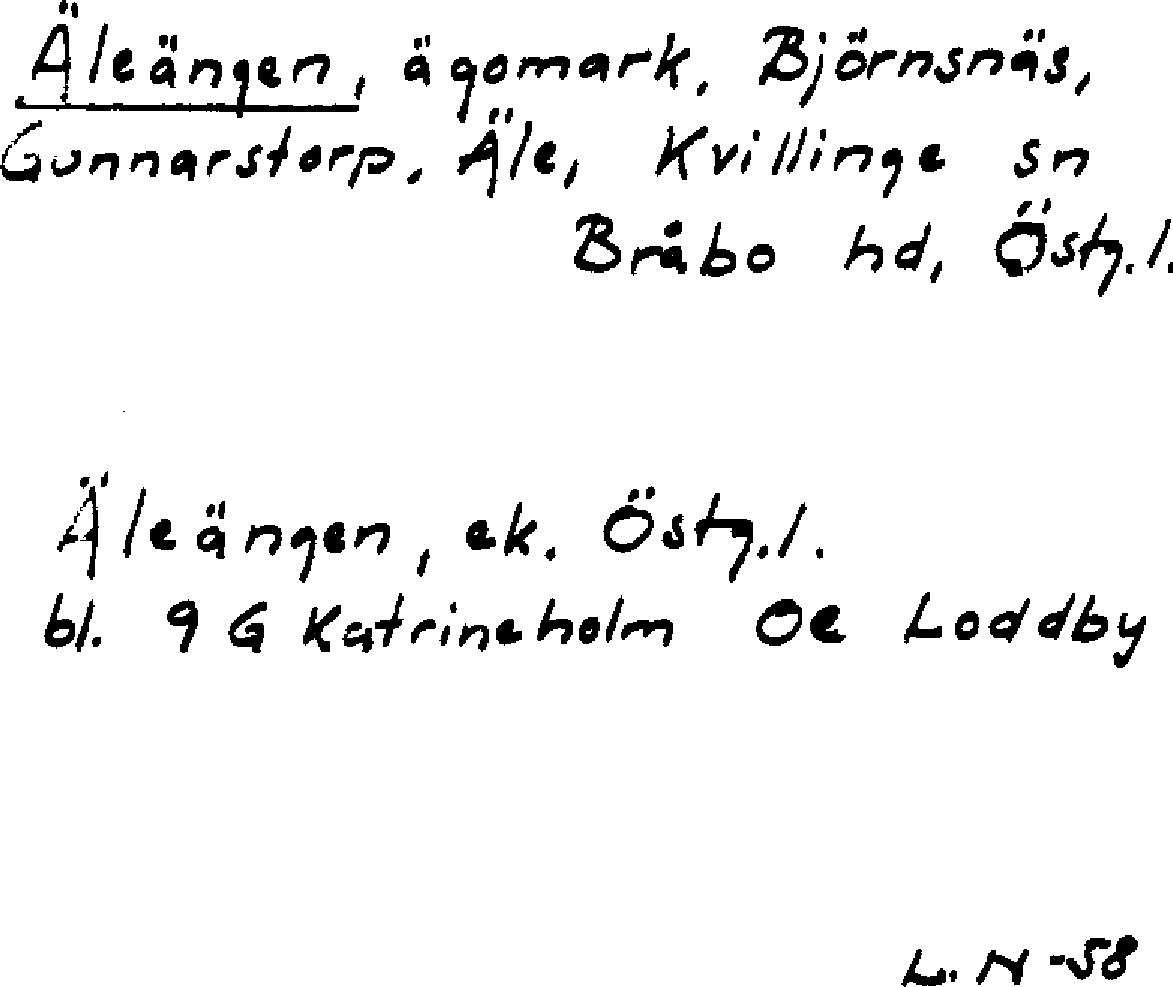 Äleängen, ägomark, Björnsnäs,
Gunnarstorp, Äle, Kvillinge sn
Bråbo hd, Östg.l.
Äleängen, ek. Östg.l.
bl. 9 G Katrineholm Oe Loddby
L. N -58